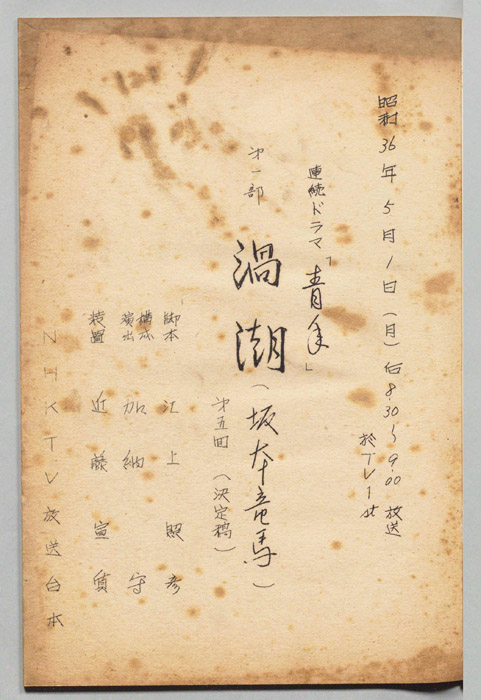 昭和36年5月1日(月)后8.30〜9.00放送
於テレ1st
連続ドラマ「青年」
第一部
渦潮(坂本竜馬)
第五回(決定稿)
脚本 江上照彦
構成
演出 加納守
装置 近藤宣質
NHKTV放送台本